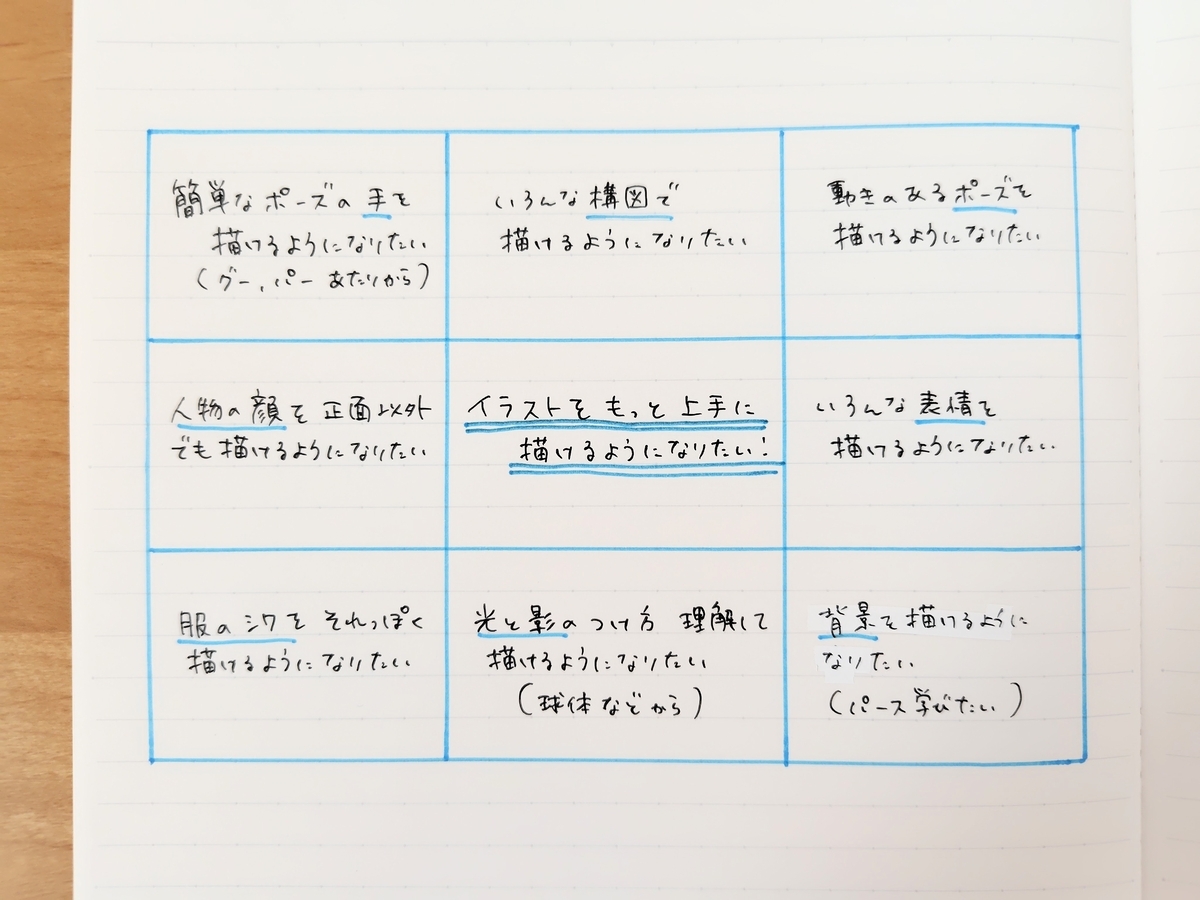 簡単なポーズの手を
描けるようになりたい
(グー、パーあたりから)
いろんな構図で
描けるようになりたい
動きのあるポーズを
描けるようになりたい
人物の顔を正面以外
でも描けるようになりたい
イラストをもっと上手に
描けるようになりたい!
いろんな表情を
描けるようになりたい
服のシワをそれっぽく
描けるようになりたい
光と影のつけ方 理解して
描けるようになりたい
(球体などから)
背景を描けるように
なりたい
(パース学びたい)